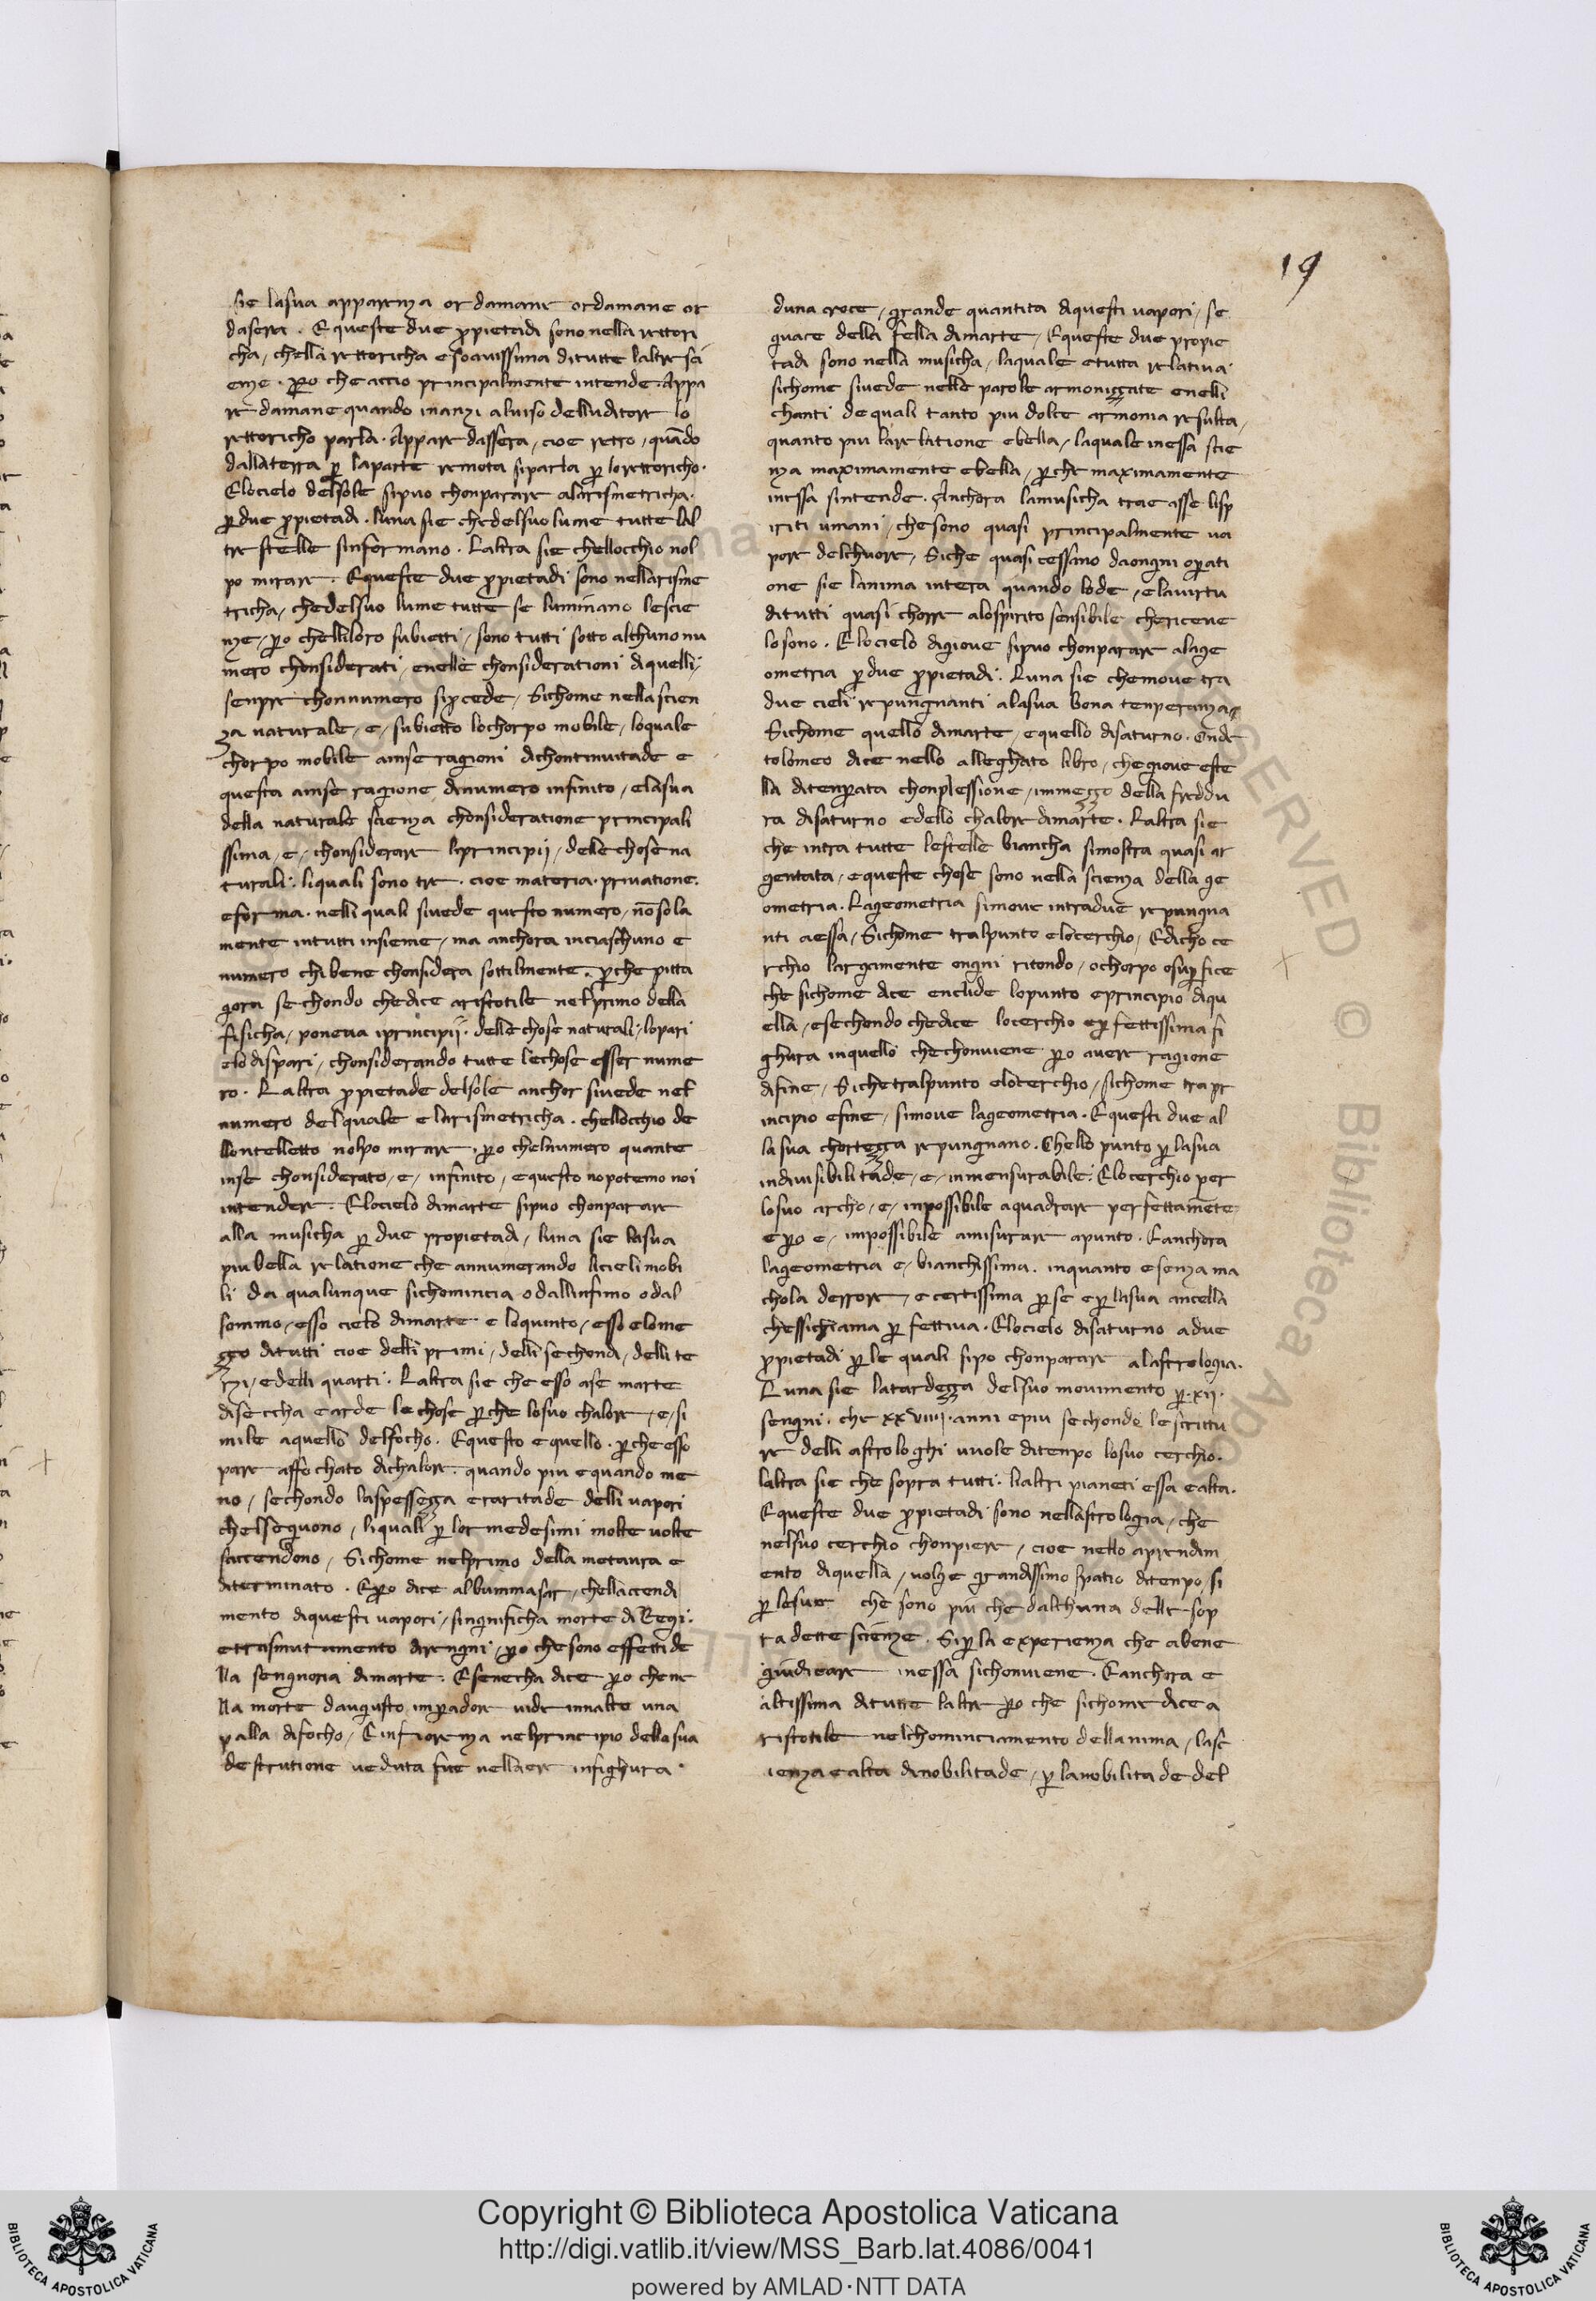 19
sie lasua apparenza or damane ordamane or
dasera. Equeste due ꝓpietadi sono nella rettori
cha, chella rettoricha e soavissima ditutte laltre sci
enze. ꝑo che accio principalmente intende. Appa
re damane quando inanzi aluiso delluditore lo
rettoricho parla. Appare dassera, cioe retro, quādo
dallaterra ꝑ laparte remota siparla ꝑ lorettoricho.
Elocielo delsole sipuo chonparare alarismetricha.
ꝑ due ꝓpietadi. luna sie chedelsuo lume tutte lal
tre stelle sinformano. Laltra sie chellocchio nol
po mirare. Equeste due ꝓpietadi sono nellarisme
tricha, chedelsuo lume tutte se luminano lescie
nze, ꝑo chelliloro subietti, sono tutti sotto alchuno nu
mero chonsiderati, enelle chonsiderationi diquelli,
senpre chonnumero siꝓcede, Sichome nella scien
za naturale, e, subietto lochorpo mobile, loquale
chorpo mobile ainse ragioni dichontinuitade e
questa ainse ragione dinumero infinito, elasua
della naturale scienza chonsideratione principali
ssima, e, chonsiderare liprincipij, delle chose na
turali. liquali sono tre. cioe materia. priuatione.
eforma. nelli quali siuede questo numero, nōsola
mente intutti insieme, ma anchora inciaschuno e
numero chibene chonsidera sottilmente. ꝑche pitta
gora sechondo chedice aristotile nelprimo della
fisicha, poneua iprincipii. delle chose naturali, lopari
elo dispari, chonsiderando tutte lechose esser nume
ro. Laltra ꝓpietade delsole anchor siuede nel
numero delquale e larismetricha. chellocchio de
llontelletto nolpo mirare, ꝑo chelnumero quante
inse chonsiderato, e, infinito, equesto nopotemo noi
intendere. Elocielo dimarte sipuo chonparare
alla musicha ꝑ due propietadi, luna sie lasua
piu bella relatione che annumerando licieli mobi
li da qualunque sichomincia o dallinfimo o dal
sommo, esso cielo dimarte e loquinto, esso elome
zzo ditutti cioe delli primi, delli sechondi, delli te
rzi, edelli quarti. Laltra sie che esso ase marte
diseccha earde le chose ꝑche losuo chalore, e, si
mile aquello delfocho. Equesto equello. ꝑche esso
pare affochato dichalore. quando piu equando me
no, sechondo laspessezza eraritade delli uapori
chelsequono, liquali ꝑ lor medesimi molte uolte
saccendono, Sichome nelprimo della metaura e
diterminato. Eꝑo dice albummasar, chellaccendi
mento diquesti uapori, singnificha morte di Regi.
etrasmutamento direngni, ꝑo che sono effetti de
lla sengnoria dimarte. Esenecha dice ꝑo chene
lla morte daugusto imꝑadore uide innalte una
palla difocho, Einfiorenza nelprincipio della sua
destrutione ueduta fue nellaere infighura.
duna croce, grande quantita diquesti uapori, se
guace della stella dimarte, Equeste due propie
tadi sono nella musicha, laquale etutta relatiua
sichome siuede nelle parole armonizzate enelli
chanti de quali tanto piu dolce armonia resulta,
quanto piu larelatione ebella, laquale inessa scie
nza maximamente ebella, ꝑche maximamente
inessa sintende. Anchora lamusicha trae asse lisp
iriti umani, che sono quasi principalmente va
pore delchuore, Siche quasi cessano daongni oꝑati
one sie lanima intera quando lode, elauirtu
ditutti quasi chorre alospirito sensibile chericeue
losono. Elocielo digioue sipuo chonparare alage
ometria ꝑ due ꝓpietadi. Luna sie chemoue tra
due cieli repungnanti alasua bona tenperanza.
Sichome quello dimarte, equello disaturno. Onde
tolomeo dice nello alleghato libro, chegioue este
lla ditenꝑata chonplessione, inmezzo della freddu
ra disaturno edello chalore dimarte. Laltra sie
che intra tutte lestelle biancha simostra quasi ar
gentata, equeste chose sono nella scienza della ge
ometria. Lageometria simoue intradue repungna
nti aessa, Sichome tralpunto elocerchio, Edicho ce
rchio largamente ongni ritondo, ochorpo osuꝑfice
che sichome dice enclide lopunto eprincipio diqu
ella, esechondo chedice locerchio eꝑfettissima fi
ghura inquello chechonuiene ꝑo auere ragione
difine, Sichetralpunto elocerchio, sichome trapr
incipio efine, simoue lageometria. Equesti due al
lasua chortezza repungnano. Chello punto ꝑ lasua
indiuisibilitade, e, inmensurabile. Elocerchio per
losuo archo, e, inpossibile aquadrare perfettamēte
eꝑo e, impossibile amisurare apunto. Eanchora
lageometria e, bianchissima. inquanto esenza ma
chola derrore, ecertissima ꝑ se eꝑ lasua ancella
chessichiama ꝑfettiua. Elocielo disaturno adue
ꝓpietadi ꝑ le quali sipo chonparare alastrologia.
Luna sie latardezza delsuo mouimento ꝑ .xij.
sengni. che xxviiij. anni epiu sechondo le scrittu
re delli astrologhi uuole ditenpo losuo cerchio.
laltra sie che sopra tutti. lialtri pianeti essa ealta.
Equeste due ꝓpietadi sono nellastrologia, che
nelsuo cerchio chonpiere, cioe nello aprendim
ento diquella, uolge grandissimo spatio ditenpo, si
ꝑ lesue che sono piu che dalchuna delle sop
ra dette scienze. Siꝑ la experienza che abene
giudicare inessa sichonuiene. Eanchora e
altissima ditutte laltre ꝑo che sichome dice a
ristotile nelchominciamento dellanima, lasc
ienza ealta dinobilitade, ꝑ lanobilitade del
Copyright © Biblioteca Apostolica Vaticana
http://digi.vatlib.it/view/MSS_Barb.lat.4086/0041
powered by AMLAD·NTT DATA